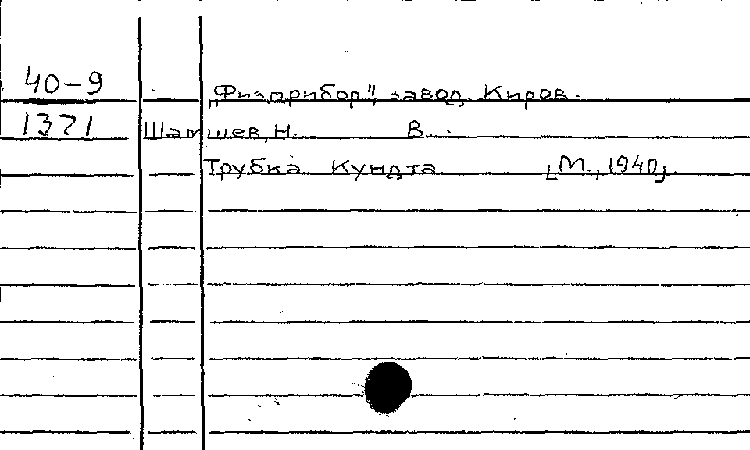 40-9 „Физприбор", завод, Киров.
1371 Шатышев, Н. В.
Трубка Кундта [М., 1940].